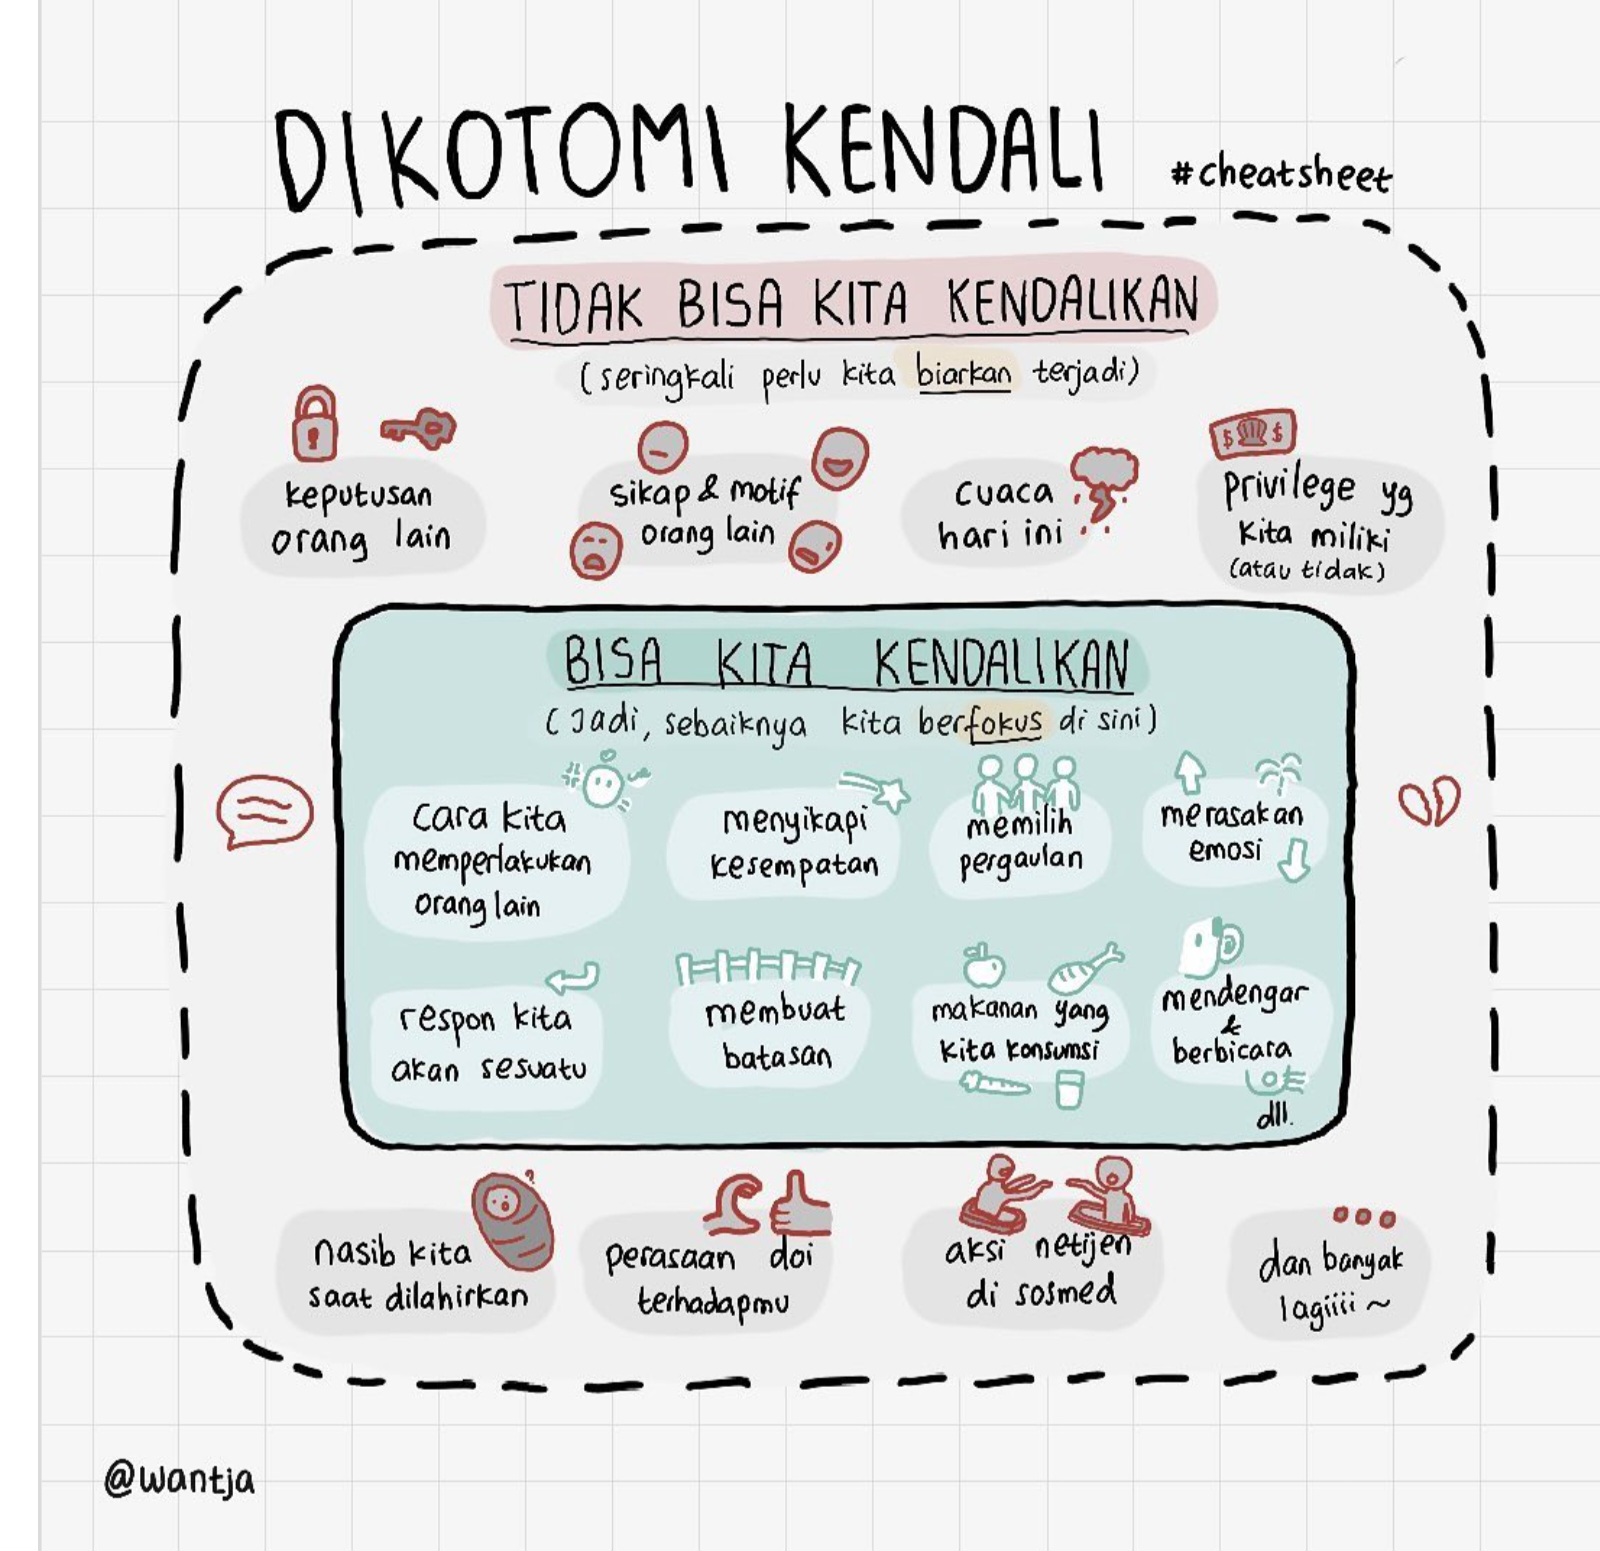 DIKOTOMI KENDALI #cheatsheet
TIDAK BISA KITA KENDALIKAN
(seringkali perlu kita biarkan terjadi)
keputusan
orang lain
sikap & motif
orang lain
cuaca
hari ini
$ $
privilege yg
kita miliki
(atau tidak)
BISA KITA KENDALIKAN
(Jadi, sebaiknya kita berfokus di sini)
cara kita
memperlakukan
orang lain
menyikapi
kesempatan
memilih
pergaulan
merasakan
emosi
respon kita
akan sesuatu
membuat
batasan
makanan yang
kita konsumsi
mendengar
&
berbicara
dll.
nasib kita
saat dilahirkan
?
perasaan doi
terhadapmu
aksi netijen
di sosmed
dan banyak
lagiiii ~
@wantja